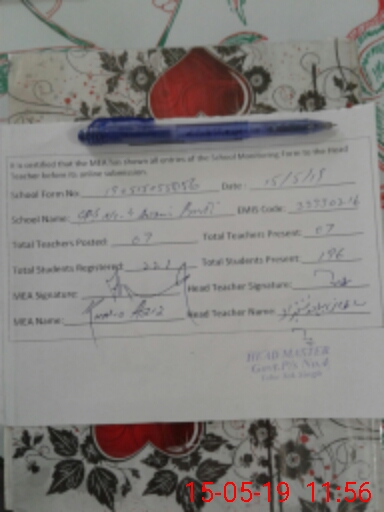 It is certified that the MEA has shown all entries of the School Monitoring Form to the Head
Teacher before its online submission.
School Form No: Date: 15/5/19
School Name: GPS No. 4 EMIS Code:
Total Teachers Posted: 07 Total Teachers Present: 07
Total Students Registered: 221 Total Students Present: 196
MEA Signature: Head Teacher Signature:
MEA Name: Head Teacher Name:
HEAD MASTER
Govt. P/S No.4
15-05-19 11:56